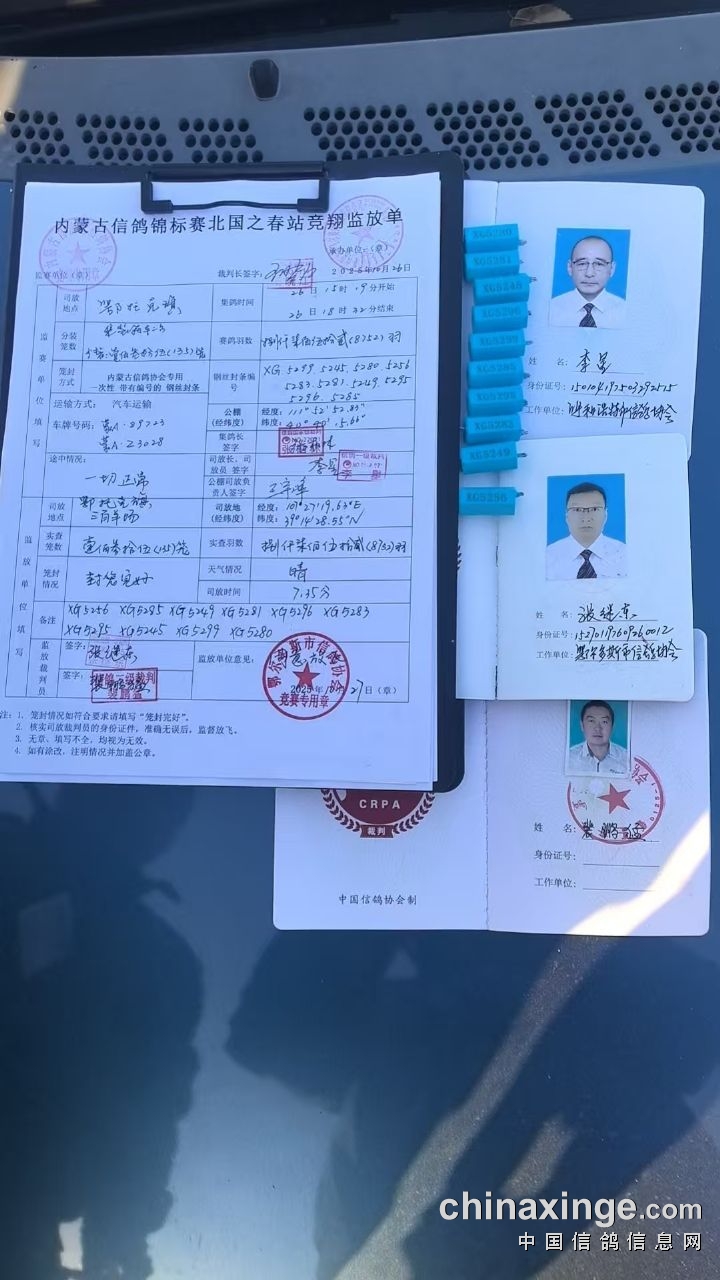 内蒙古信鸽锦标赛北国之春站竞翔监放单
承办单位：（章）
监赛单位（章） 裁判长签字： 2025年10月26日
监赛单位填写
司放地点 鄂托克旗 集鸽时间 26日15时19分开始
26日18时32分结束
分装笼数 赛鸽羽数 捌仟柒佰伍拾贰(8752)羽
笼封方式 内蒙古信鸽协会专用 一次性 带有编号的 钢丝封条
钢丝封条编号 XG 5299. 5245. 5280. 5256
5283. 5281. 5249. 5295
5296. 5285
运输方式： 汽车运输
车牌号码：蒙A·89723
蒙A·23028
公棚（经纬度） 经度：111°52′52.83″
纬度：
集鸽长签字
途中情况： 一切正常
司放长、司放员 签字 李星
公棚司放负责人签字
监放单位填写
司放地点 鄂托克旗
三眉羊场
司放地（经纬度） 经度：107°27′19.63″E
纬度：39°14′28.55″N
实查笼数 壹佰叁拾伍(135)笼 实查羽数 捌仟柒佰伍拾贰(8752)羽
笼封情况 封笼完好 天气情况 晴
司放时间 7.35分
备注 XG5256 XG5285 XG5249 XG5281 XG5296 XG5283
XG5295 XG5245 XG5299 XG5280
监放裁判员 签字：张继东
签字：裴鹏猛
监放单位意见：
2025年10月27日（章）
鄂尔多斯市信鸽协会
竞赛专用章
注：1. 笼封情况如符合要求请填写“笼封完好”。
2. 核实司放裁判员的身份证件，准确无误后，监督放飞。
3. 无章、填写不全，均视为无效。
4. 如有涂改，注明情况并加盖公章。
XG5280
XG5281
XG5245
XG5296
XG5299
XG5285
XG5295
XG5283
XG5249
XG5256
姓 名： 李星
身份证号：
工作单位：呼和浩特市信鸽协会
姓 名： 张继东
身份证号：
工作单位：鄂尔多斯市信鸽协会
CRPA
裁判
中国信鸽协会制
姓 名： 裴鹏猛
身份证号：
工作单位：
chinaxinge.com
中国信鸽信息网